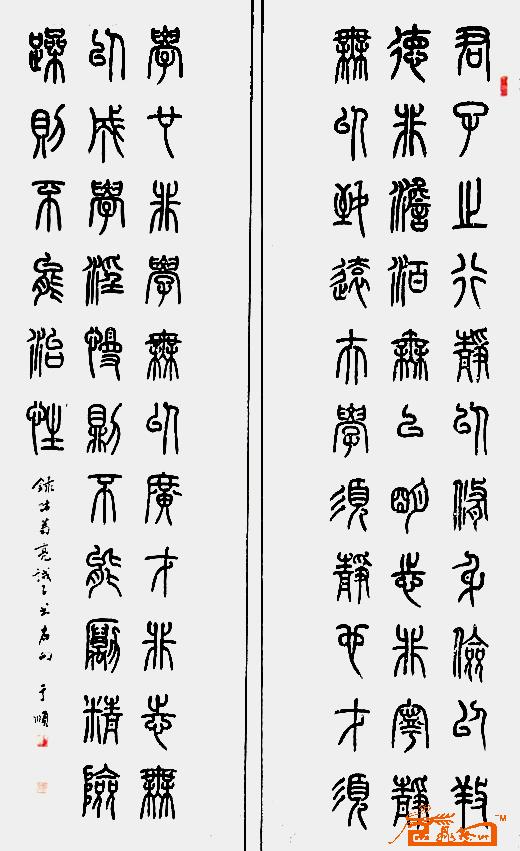 君子之行靜以修身儉以養
德非澹泊無以明志非寧靜
無以致遠夫學須靜也才須
學也非學無以廣才非志無
以成學淫慢則不能勵精險
躁則不能治性
錄諸葛亮誡子书